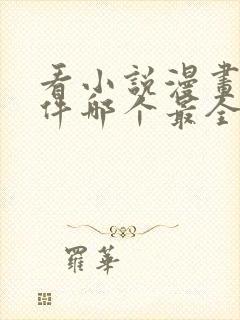 看小說漫畫
件哪个最全
羅華